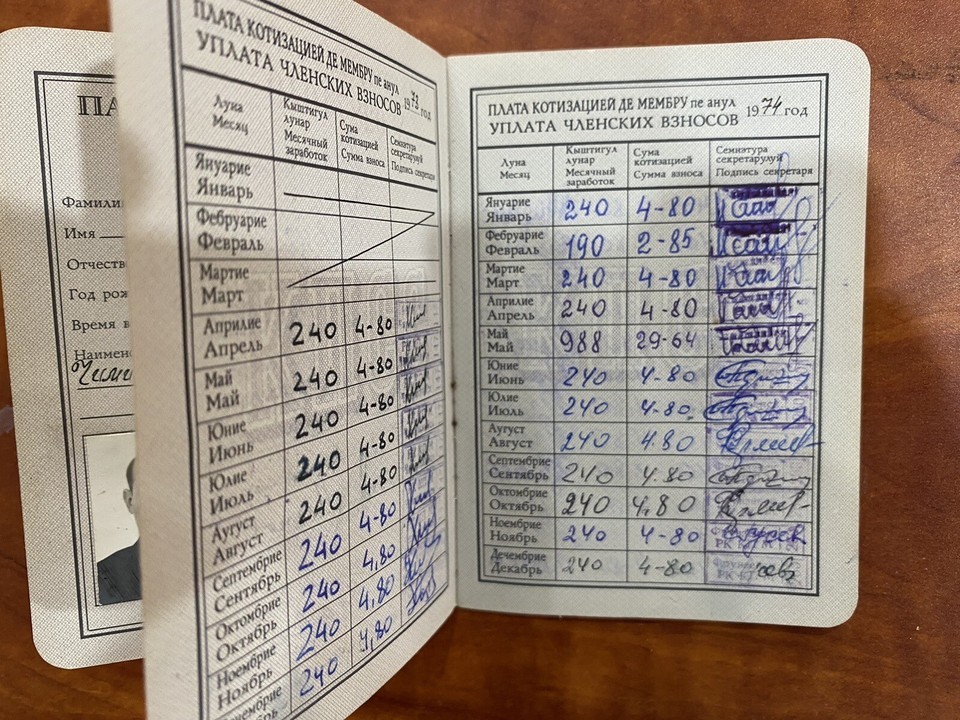 ПА
Фамили
Имя
Отчеств
Год рож
Время в
Наимено
ПЛАТА КОТИЗАЦИЕЙ ДЕ МЕМБРУ пе анул
УПЛАТА ЧЛЕНСКИХ ВЗНОСОВ 1973 год
Луна Месяц
Кыштигул лунар Месячный заработок
Сума котизацией Сумма взноса
Семнэтура секретарулуй Подпись секретаря
Януарие
Январь
Фебруарие
Февраль
Мартие
Март
Априлие
Апрель 240 4-80
Май
Май 240 4-80
Юние
Июнь 240 4-80
Юлие
Июль 240 4-80
Аугуст
Август 240 4-80
Септембрие
Сентябрь 240 4-80
Октомбрие
Октябрь 240 4,80
Ноембрие
Ноябрь 240 4,80
Дечембрие
брь 240 4,80
ПЛАТА КОТИЗАЦИЕЙ ДЕ МЕМБРУ пе анул
УПЛАТА ЧЛЕНСКИХ ВЗНОСОВ 1974 год
Луна Месяц
Кыштигул лунар Месячный заработок
Сума котизацией Сумма взноса
Семнэтура секретарулуй Подпись секретаря
Януарие
Январь 240 4-80
Фебруарие
Февраль 190 2-85
Мартие
Март 240 4-80
Априлие
Апрель 240 4-80
Май
Май 988 29-64
Юние
Июнь 240 4-80
Юлие
Июль 240 4-80
Аугуст
Август 240 4.80
Септембрие
Сентябрь 240 4.80
Октомбрие
Октябрь 240 4,80
Ноембрие
Ноябрь 240 4-80
Дечембрие
Декабрь 240 4-80